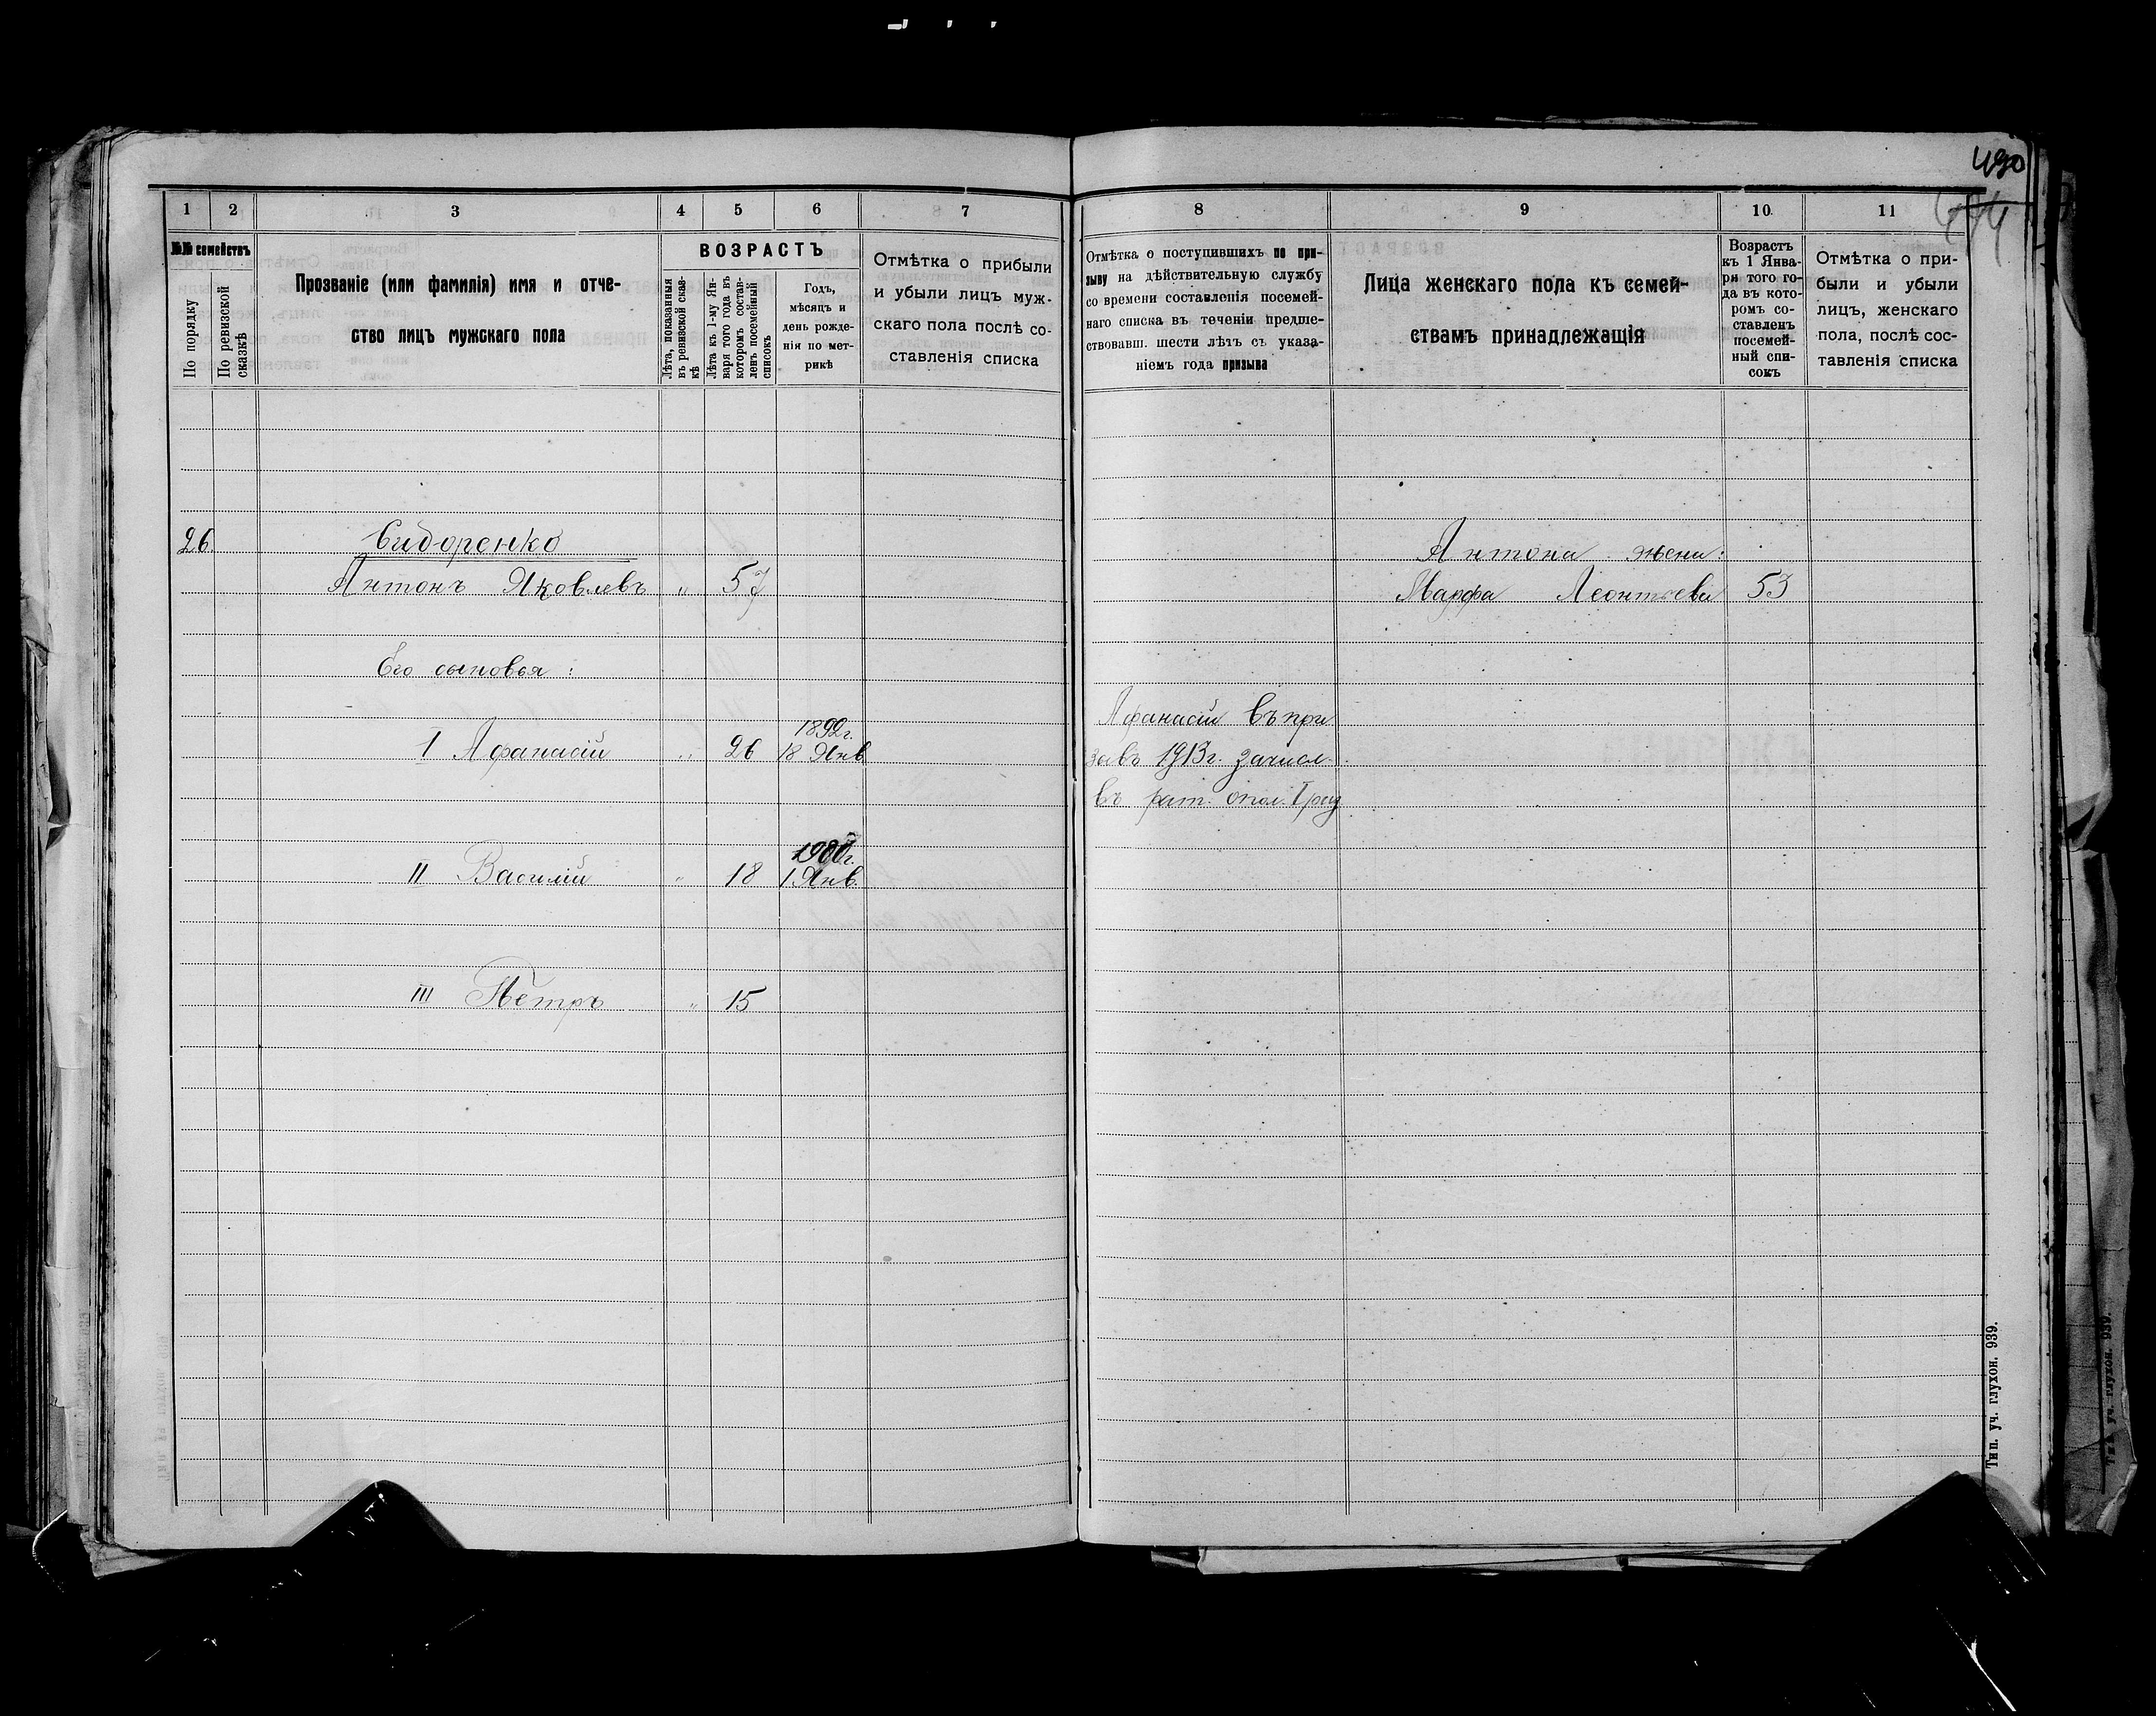 490
1 2 3 4 5 6 7
№№ семействъ
По порядку
По ревизской сказкѣ
Прозваніе (или фамилія) имя и отче-
ство лицъ мужскаго пола
ВОЗРАСТЪ
Лѣта, показанныя
въ ревизской сказ-
кѣ
Лѣта къ 1-му Ян-
варя того года въ
которомъ состав-
ленъ посемейный
списокъ
Годъ,
мѣсяцъ и
день рожде-
нія по мет-
рикѣ
Отмѣтка о прибыли
и убыли лицъ муж-
скаго пола послѣ со-
ставленія списка
26. Сидоренко
Антонъ Яковлевъ „ 57
Его сыновья:
1892г.
I Афанасій „ 26 18 Янв
1900г.
II Василій „ 18 1 Янв.
III Петръ „ 15
8 9 10 11
Отмѣтка о поступившихъ по при-
зыву на дѣйствительную службу
со времени составленія посемей-
наго списка въ теченіи предше-
ствовавш. шести лѣтъ съ указа-
ніемъ года призыва
Лица женскаго пола къ семей-
ствамъ принадлежащія
Возрастъ
къ 1 Янва-
ря того го-
да въ кото-
ромъ со-
ставленъ
посемей-
ный спи-
сокъ
Отмѣтка о при-
были и убыли
лицъ, женскаго
пола, послѣ сос-
тавленія списка
Антона жена:
Марфа Леонтьева 53
Афанасій въ при
зывъ 1913г. зачисл.
въ рат. опол. I раз
Тип. уч. глухон. 939.